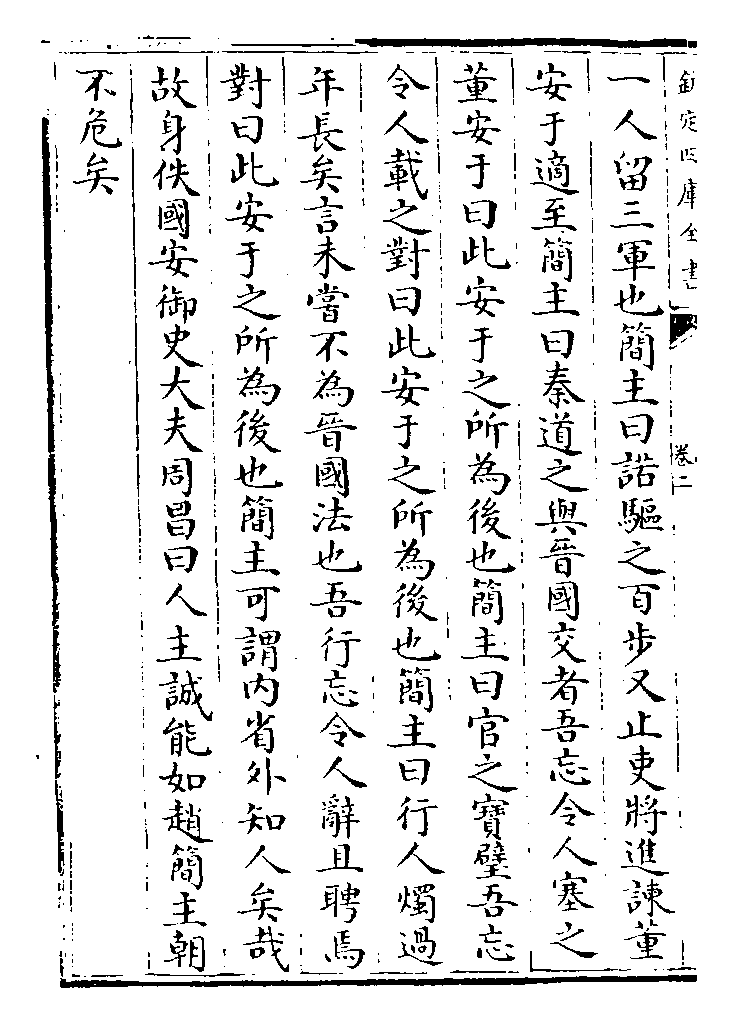 欽定四庫全書
卷二
一人留三軍也簡主曰諾驅之百步又止吏將進諫董
安于適至簡主曰秦道之與晉國交者吾忘令人塞之
董安于曰此安于之所為後也簡主曰官之寶璧吾忘
令人載之對曰此安于之所為後也簡主曰行人燭過
年長矣言未嘗不為晉國法也吾行忘令人辭且聘焉
對曰此安于之所為後也簡主可謂內省外知人矣哉
故身佚國安御史大夫周昌曰人主誠能如趙簡主朝
不危矣